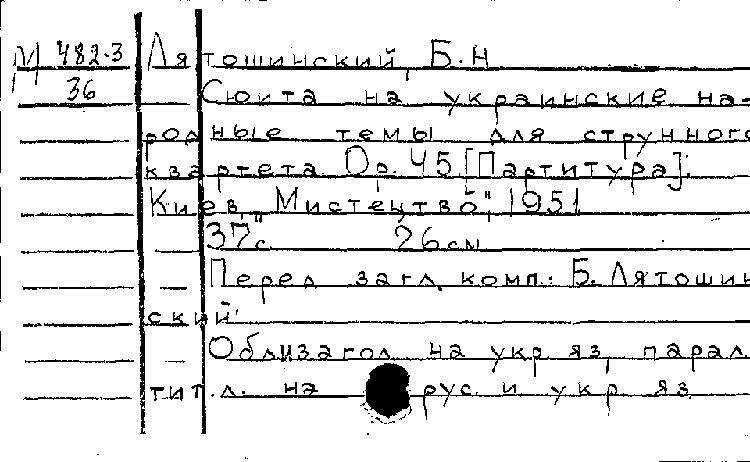 М 482-3 Лятошинский, Б.Н
36 Сюита на украинские на-
родные темы для струнного
квартета Ор. 45 [Партитура].
Киев, "Мистецтво", 1951
37 с. 26 см
Перед загл. комп.: Б. Лятошин
ский.
Обл. и загол. на укр яз, парал.
тит. л. на рус. и укр яз